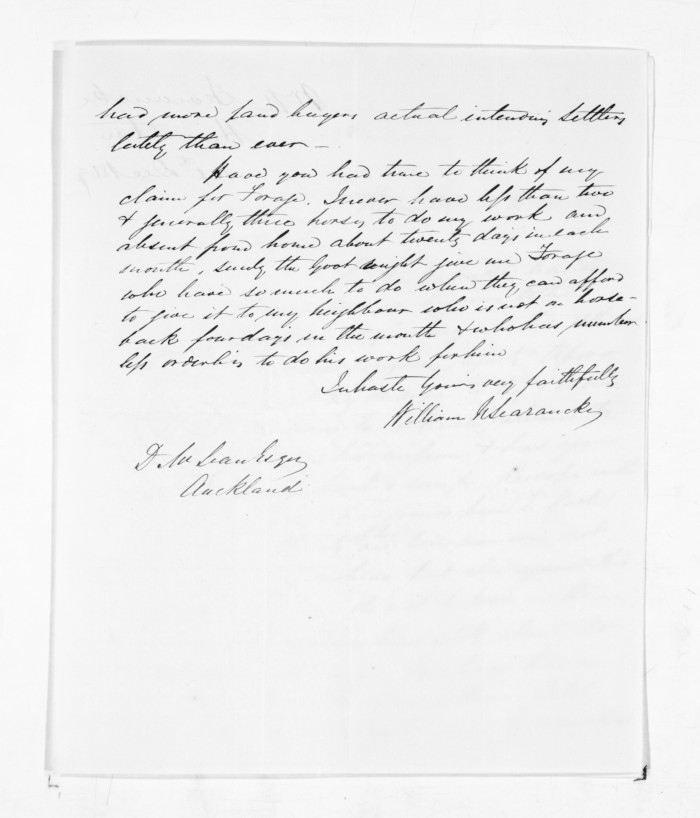 had more land buyers actual intending settlers
lately than ever —
Have you had time to think of my
claim for Forage. I never have less than two
& generally three horses to do my work and
absent from home about twenty days in each
month, surely the Govt might give me Forage
who have so much to do when they can afford
to give it to my neighbour who is not on horse-
back four days in the month & who has number
less orderlies to do his work for him
In haste Yours very faithfully
William N Searancke
D McLean Esqr
Auckland